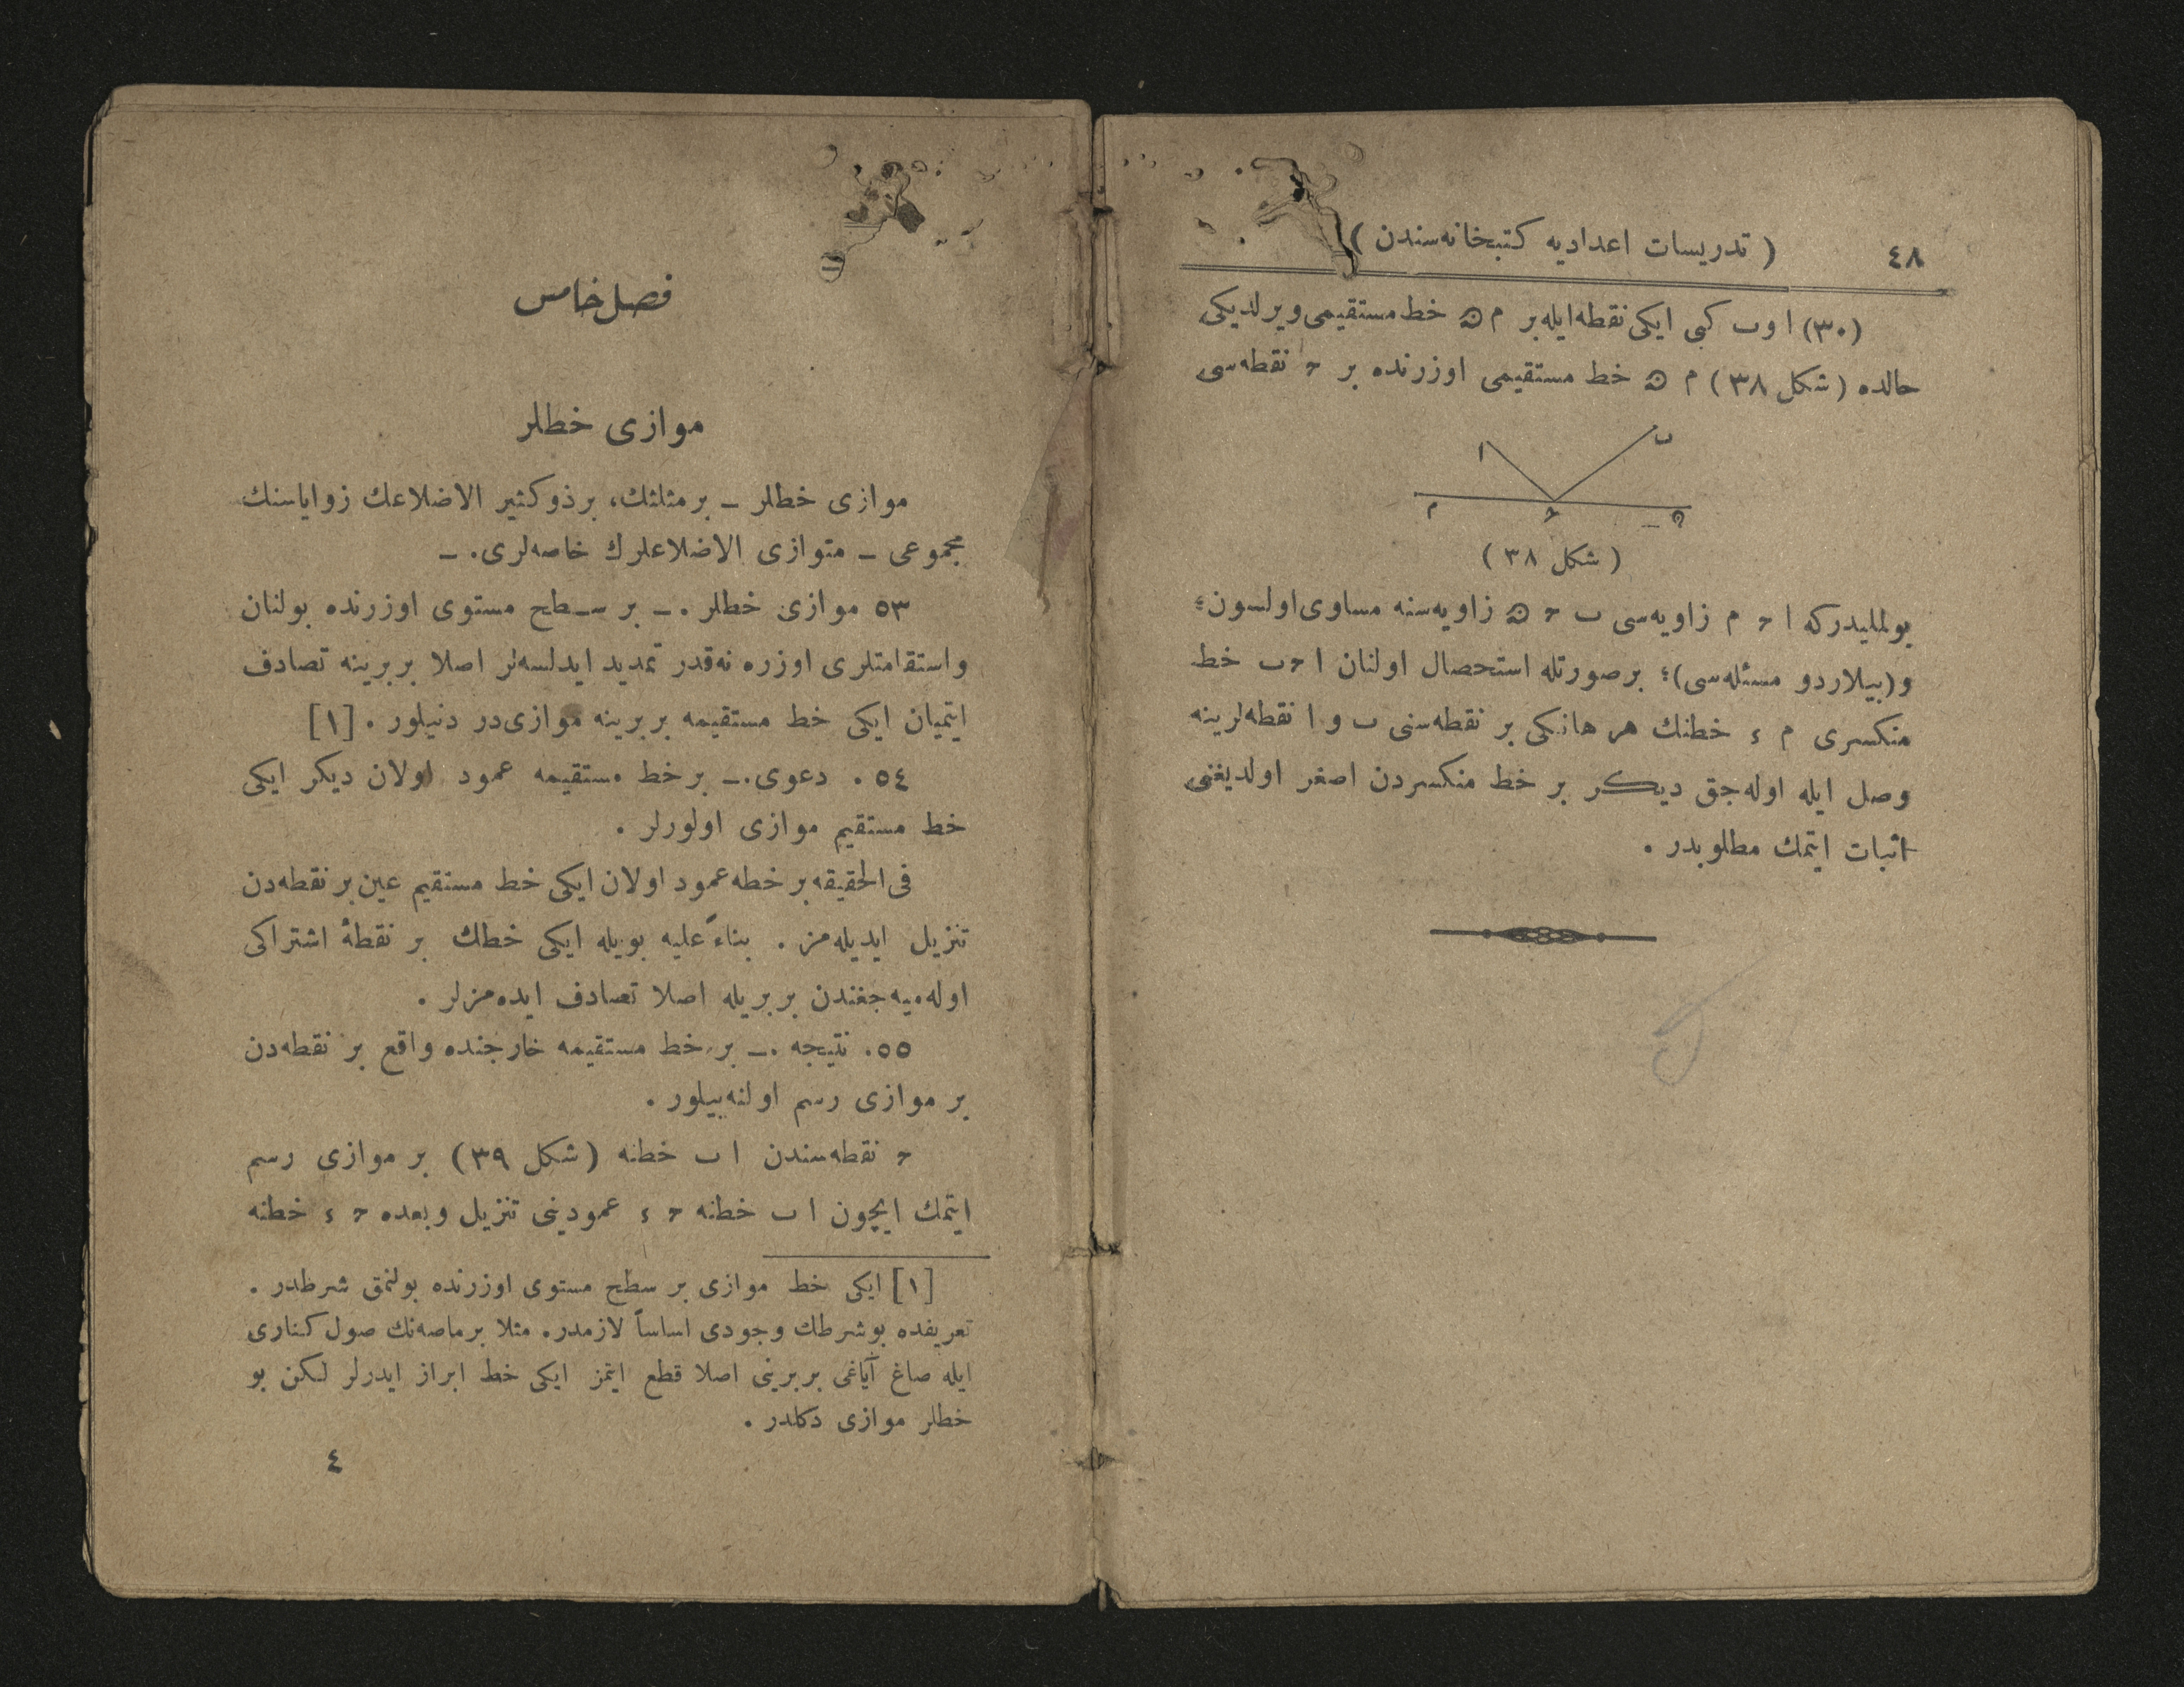 ٤٨ ( تدریسات اعدادیه کتبخانه‌سندن )
(٣٠) ا وب کبی ایکی نقطه ایله بر م ﻫ خط مستقیمی ویرلدیکی
حالده (شکل ٣٨) م ﻫ خط مستقیمی اوزرنده بر ﺣ نقطه‌سی
ا ب
م ﺣ ﻫ
( شکل ٣٨ )
بولملیدرکه ا ﺣ م زاویه‌سی ب ﺣ ﻫ زاویه‌سنه مساوی اولسون؛
و(بیلاردو مسئله‌سی)؛ برصورتله استحصال اولنان ا ﺣ ب خط
منکسری م ء خطنك هر هانکی بر نقطه‌سنی ب و ا نقطه‌لرینه
وصل ایله اوله‌جق دیکر بر خط منکسردن اصغر اولدیغنی
اثبات ایتمك مطلوبدر .
فصل خامس
موازی خطلر
موازی خطلر ـ بر مثلثك، بر ذوکثیر الاضلاعك زوایاسنك
مجموعی ـ متوازی الاضلاعلرك خاصه‌لری. ـ
٥٣ موازی خطلر .ـ بر سطح مستوی اوزرنده بولنان
واستقامتلری اوزره نه‌قدر تمدید ایدلسه‌لر اصلا بربرینه تصادف
ایتمیان ایکی خط مستقیمه بربرینه موازی‌در دنیلور . [١]
٥٤ . دعوی.ـ بر خط مستقیمه عمود اولان دیکر ایکی
خط مستقیم موازی اولورلر .
فی الحقیقه بر خطه عمود اولان ایکی خط مستقیم عین بر نقطه‌دن
تنزیل ایدیله‌مز . بناءً علیه بویله ایکی خطك بر نقطهٔ اشتراکی
اوله‌میه‌جغندن بربریله اصلا تصادف ایده‌مزلر .
٥٥. نتیجه .ـ بر خط مستقیمه خارجنده واقع بر نقطه‌دن
بر موازی رسم اولنه‌بیلور .
ﺣ نقطه‌سندن ا ب خطنه (شکل ٣٩) بر موازی رسم
ایتمك ایچون ا ب خطنه ﺣ ء عمودینی تنزیل وبعده ﺣ ء خطنه
[١] ایکی خط موازی بر سطح مستوی اوزرنده بولنمق شرطدر .
تعریفده بوشرطك وجودی اساساً لازمدر. مثلا بر ماصه‌نك صول کناری
ایله صاغ آیاغی بربرینی اصلا قطع ایتمز ایکی خط ابراز ایدرلر لکن بو
خطلر موازی دکلدر .
٤